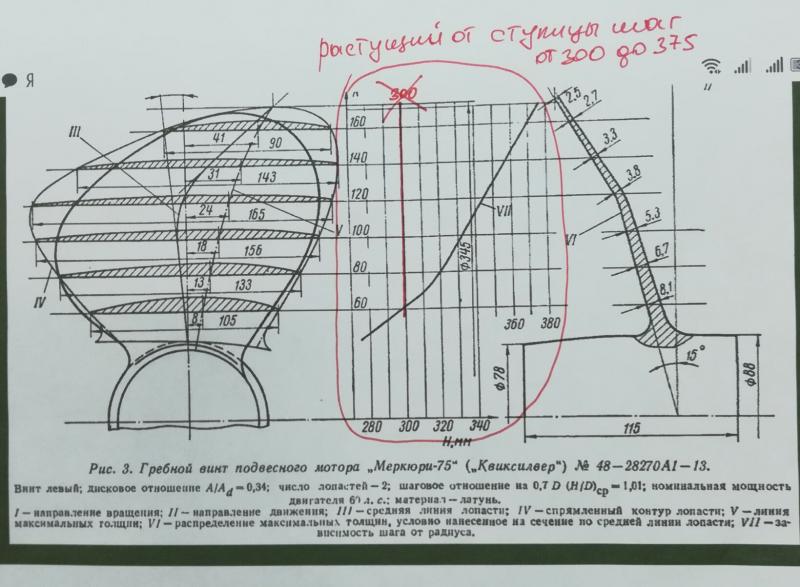 растущий от ступицы шаг
от 300 до 375
Я
300
III
41
90
31
143
24
165
V
18
156
IV
13
133
105
8
160
140
120
100
80
60
VII
ϕ345
360 380
280 300 320 340
H, мм
II
2,5
2,7
3,3
3,8
5,3
VI
6,7
8,1
15°
ϕ78
ϕ88
115
Рис. 3. Гребной винт подвесного мотора „Меркюри-75“ („Квиксилвер“) № 48—28270А1—13.
Винт левый; дисковое отношение A/Ad=0,34; число лопастей—2; шаговое отношение на 0,7 D (H/D)ср=1,01; номинальная мощность
двигателя 60 л. с.; материал—латунь.
I—направление вращения; II—направление движения; III—средняя линия лопасти; IV—спрямленный контур лопасти; V—линия
максимальных толщин; VI—распределение максимальных толщин, условно нанесенное на сечение по средней линии лопасти; VII—за-
висимость шага от радиуса.